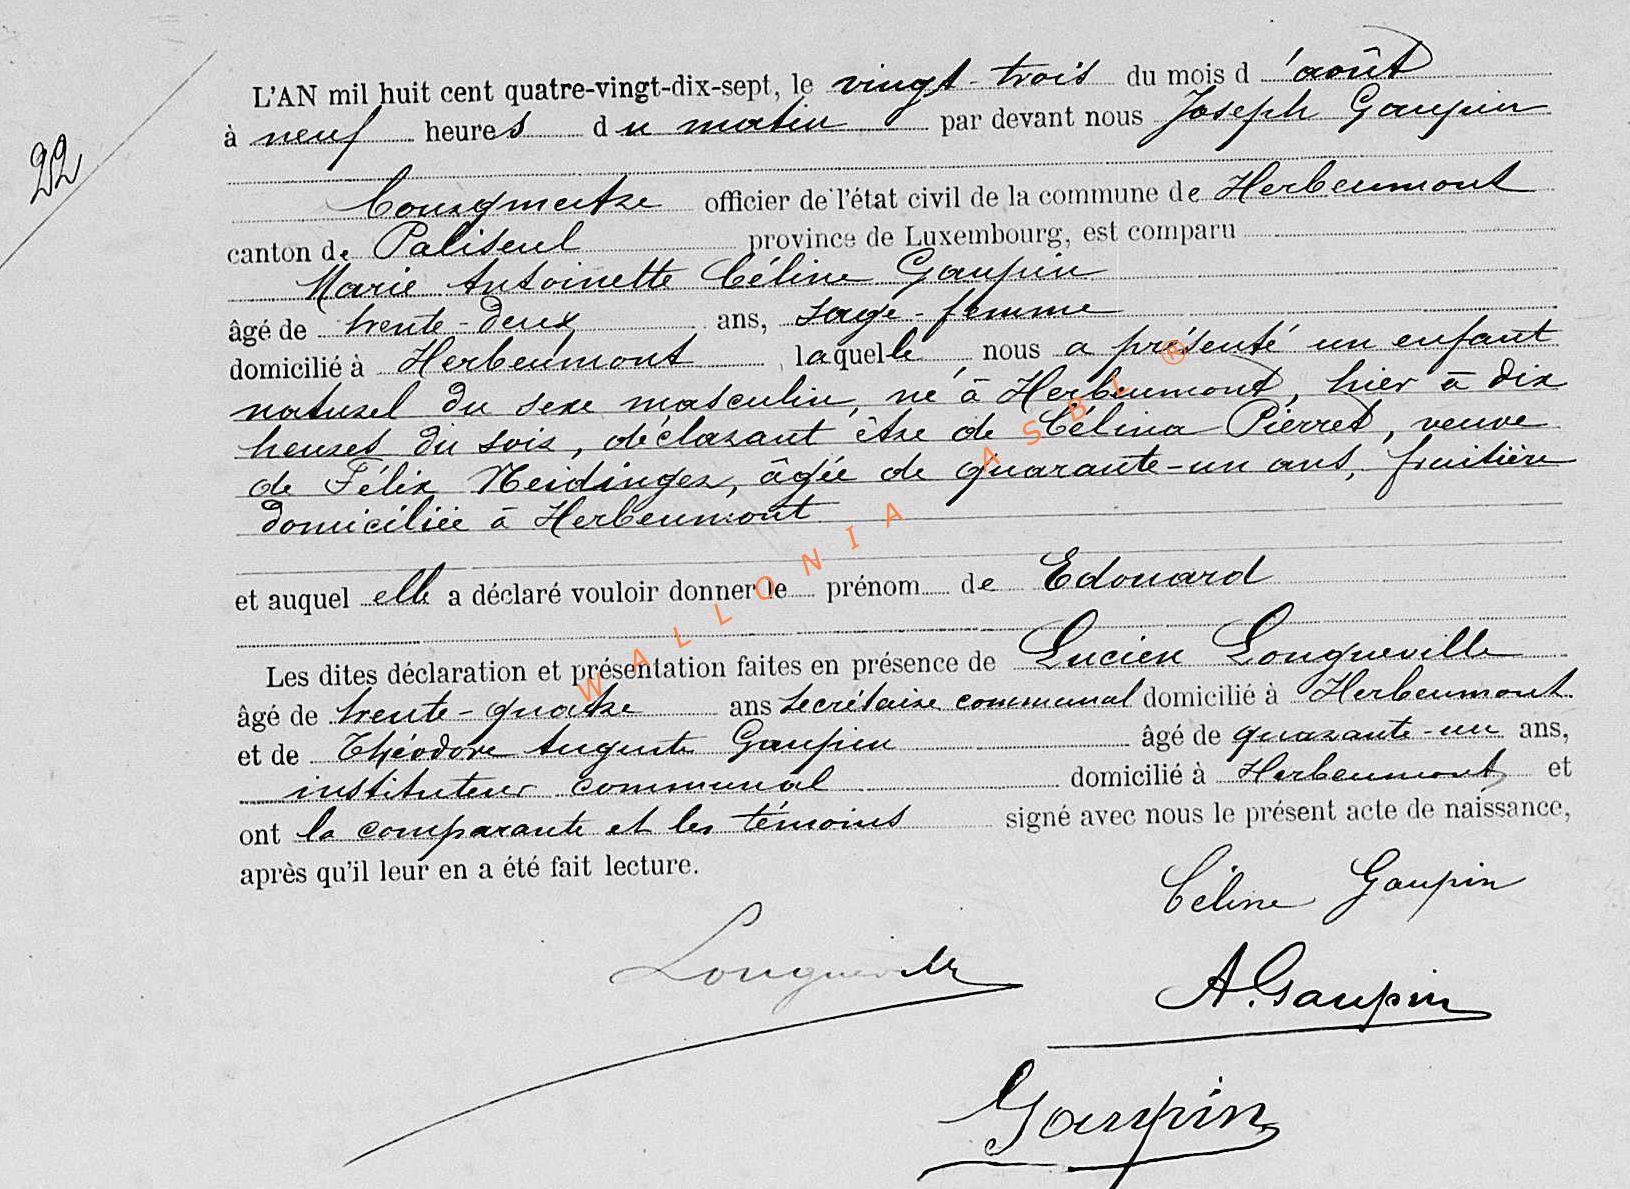 L'AN mil huit cent quatre-vingt-dix-sept, le vingt-trois du mois d'août
22
à neuf heures du matin par devant nous Joseph Gaupin
Bourgmestre officier de l'état civil de la commune de Herbeumont
canton de Paliseul province de Luxembourg, est comparu
Marie Antoinette Céline Gaupin
âgé de trente-deux ans, sage-femme
domicilié à Herbeumont, laquelle nous a présenté un enfant
naturel du sexe masculin, né à Herbeumont, hier à dix
heures du soir, déclarant être de Célina Pierret, veuve
de Félix Neidinger, âgée de quarante-un ans, fruitière
domiciliée à Herbeumont
et auquel elle a déclaré vouloir donner le prénom de Edouard
Les dites déclaration et présentation faites en présence de Lucien Longueville
âgé de trente-quatre ans secrétaire communal domicilié à Herbeumont
et de Théodore Auguste Gaupin âgé de quarante-un ans,
instituteur communal domicilié à Herbeumont, et
ont la comparante et les témoins signé avec nous le présent acte de naissance,
après qu'il leur en a été fait lecture.
Céline Gaupin
Longueville
A. Gaupin
Gaupin
WALLONIA ASBL ®